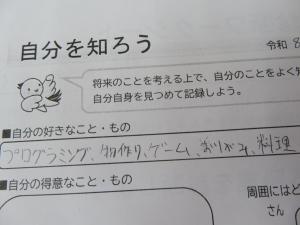 自分を知ろう
令和 8
将来のことを考える上で、自分のことをよく知
自分自身を見つめて記録しよう。
■自分の好きなこと・もの
プログラミング、物作り、ゲーム、おりがみ、料理
■自分の得意なこと・もの
周囲にはど
さん